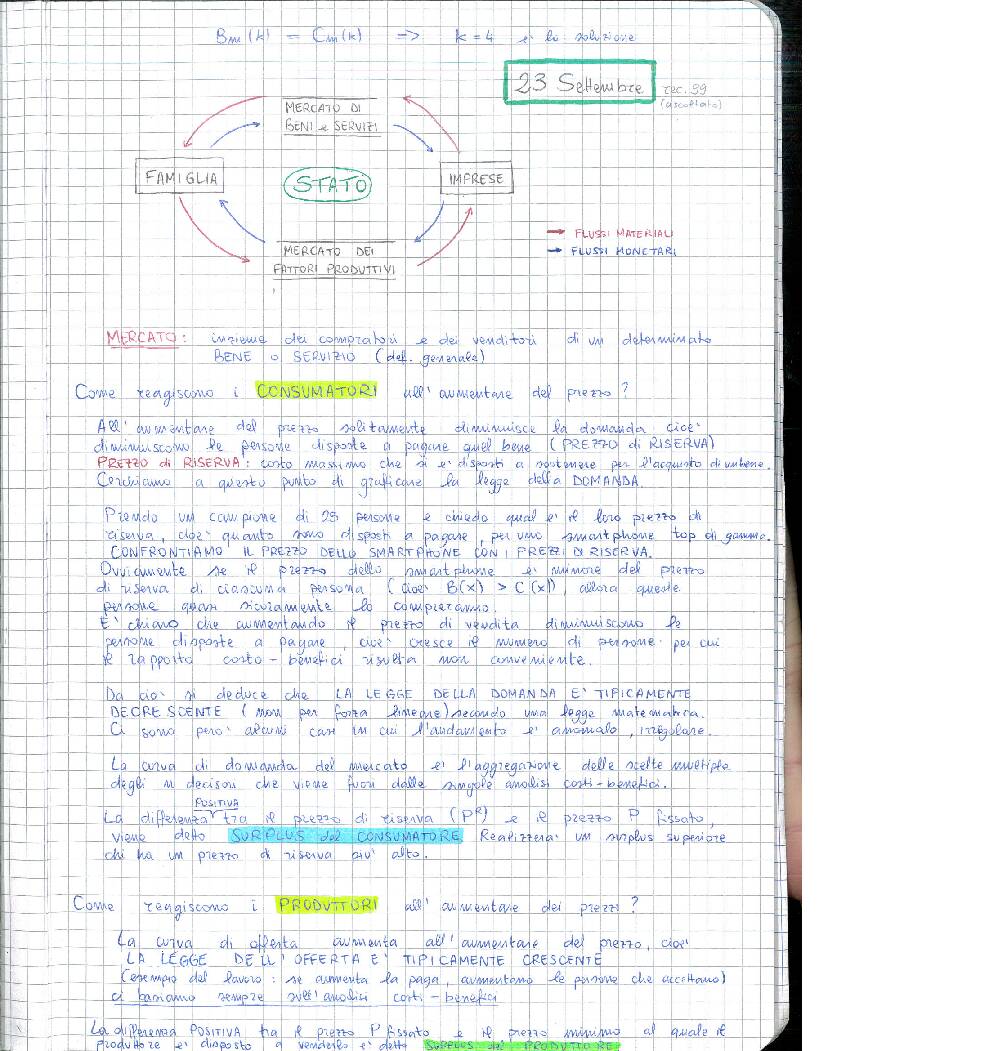 Bm(k) = Cm(k) => k=4 e' la soluzione
23 Settembre rec. 39
(ascoltato)
MERCATO DI
BENI e SERVIZI
FAMIGLIA
STATO
IMPRESE
MERCATO DEI
FATTORI PRODUTTIVI
→ FLUSSI MATERIALI
→ FLUSSI MONETARI
MERCATO: insieme dei compratori e dei venditori di un determinato
BENE o SERVIZIO (def. generale)
Come reagiscono i CONSUMATORI all'aumentare del prezzo?
All'aumentare del prezzo solitamente diminuisce la domanda cioe'
diminuiscono le persone disposte a pagare quel bene (PREZZO di RISERVA)
PREZZO di RISERVA: costo massimo che si e' disposti a sostenere per l'acquisto di un bene.
Cerchiamo a questo punto di graficare la legge della DOMANDA.
Prendo un campione di 25 persone e chiedo qual e' il loro prezzo di
riserva, cioe' quanto sono disposti a pagare, per uno smartphone top di gamma.
CONFRONTIAMO IL PREZZO DELLO SMARTPHONE CON I PREZZI DI RISERVA.
Ovviamente se il prezzo dello smartphone e' minore del prezzo
di riserva di ciascuna persona (cioe' B(x) > C(x)), allora queste
persone quasi sicuramente lo compreranno.
E' chiaro che aumentando il prezzo di vendita diminuiscono le
persone disposte a pagare, cioe' cresce il numero di persone per cui
il rapporto costo-benefici risulta non conveniente.
Da cio' si deduce che LA LEGGE DELLA DOMANDA E' TIPICAMENTE
DECRESCENTE (non per forza lineare) secondo una legge matematica.
Ci sono pero' alcuni casi in cui l'andamento e' anomalo, irregolare.
La curva di domanda del mercato e' l'aggregazione delle scelte multiple
degli n decisori che viene fuori dalle singole analisi costi-benefici.
POSITIVA
La differenza tra il prezzo di riserva (Pᴿ) e il prezzo P fissato,
viene detto SURPLUS del CONSUMATORE. Realizzera' un surplus superiore
chi ha un prezzo di riserva piu' alto.
Come reagiscono i PRODUTTORI all'aumentare dei prezzi?
La curva di offerta aumenta all'aumentare del prezzo, cioe'
LA LEGGE DELL'OFFERTA E' TIPICAMENTE CRESCENTE
(esempio del lavoro: se aumenta la paga, aumentano le persone che accettano)
ci basiamo sempre sull'analisi costi-benefici
La differenza POSITIVA tra il prezzo P fissato e il prezzo minimo al quale il
produttore e' disposto a venderlo e' detto SURPLUS del PRODUTTORE.